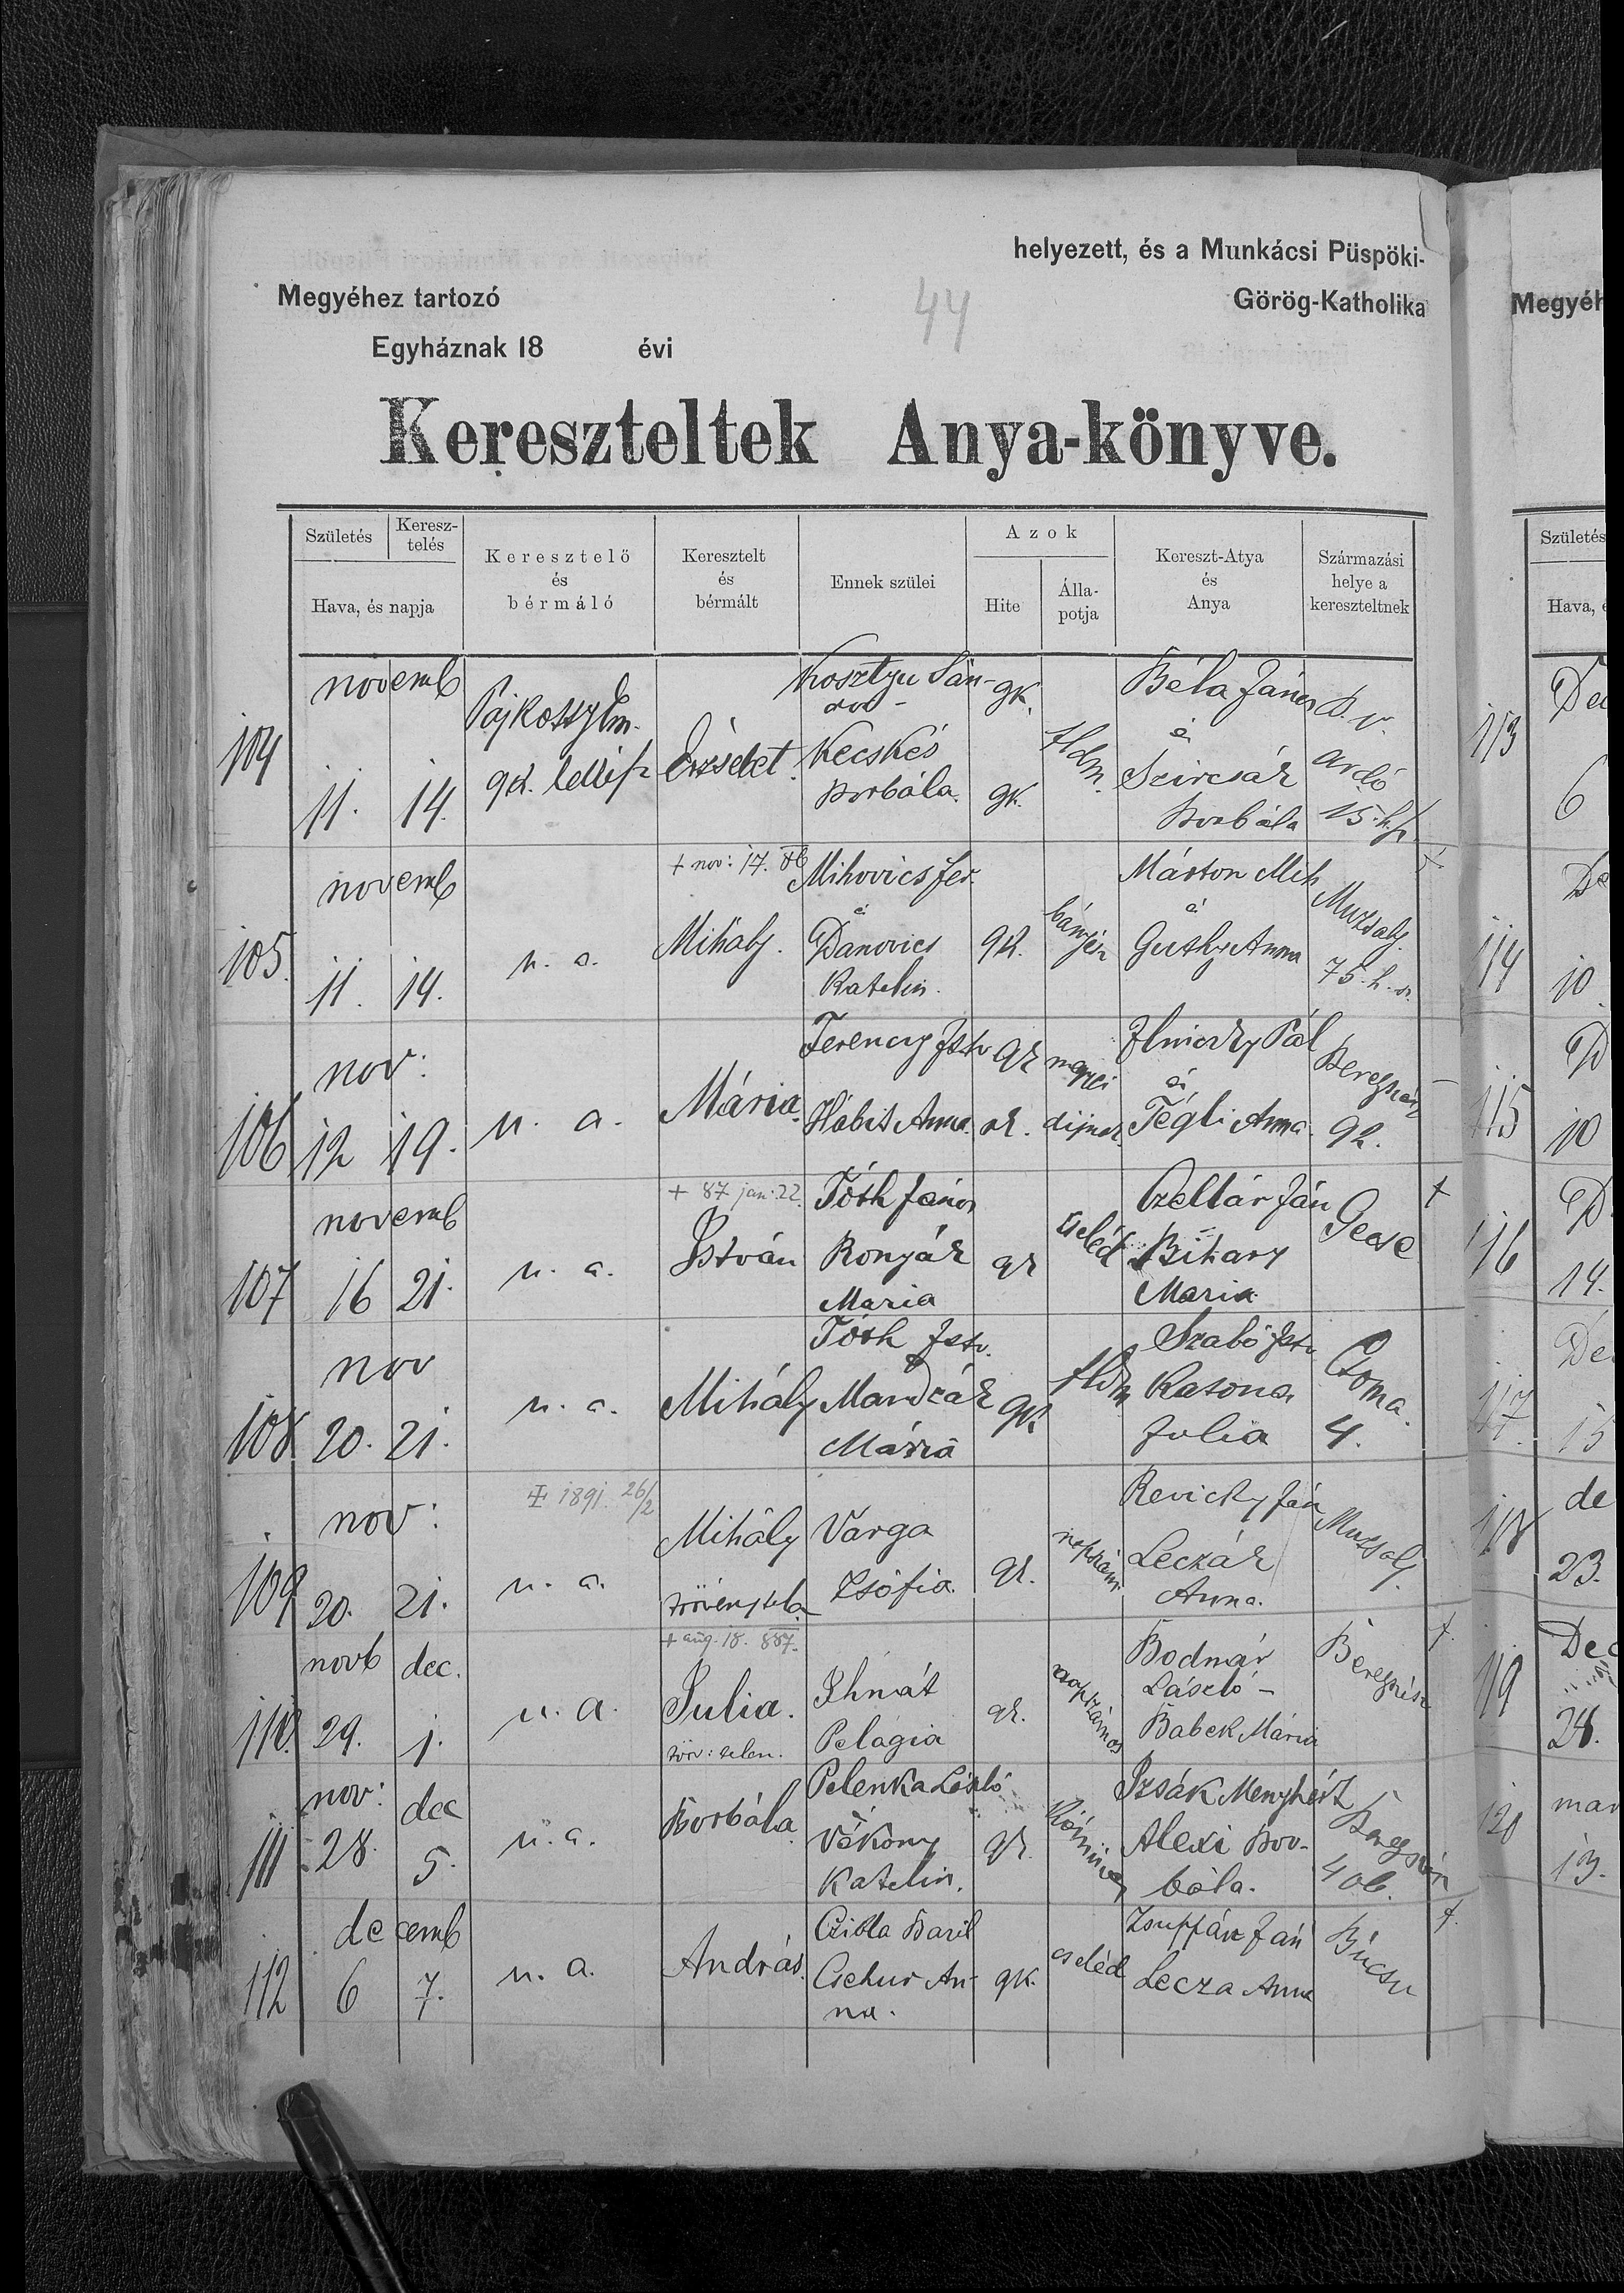 helyezett, és a Munkácsi Püspöki-
Megyéhez tartozó 44 Görög-Katholika
Egyháznak 18 évi
Kereszteltek Anya-könyve.
Születés
Keresz-
telés
Hava, és napja
Keresztelő
és
bérmáló
Keresztelt
és
bérmált
Ennek szülei
Azok
Hite
Álla-
potja
Kereszt-Atya
és
Anya
Származási
helye a
kereszteltnek
104
novemb
11. 14.
Erzsébet
Kosztyu Sán-
dor -
Kecskés
Borbála.
gk.
gk.
fldm.
Béla János
é
Szircsák
Borbála
B. v.
ardó
105.
novemb
11. 14.
u. a.
+ nov: 17. 86
Mihály.
Mihovics Fer.
é
Danovics
Katalin.
gk.
bányász
Márton Mih
é
Anna
Muzsaly.
75. h. sz.
106
nov:
12 19.
u. a.
Mária.
Ferenczy Istv
Hábit Anna.
gk
megyei
Pál
és
Tégli Anna.
Beregszász
107
novemb
16 21.
u. a.
+ 87 jan: 22.
István
Tóth János
Ronyák
Maria
gk
cseléd
Czellár Ján
Bihary
Maria
Gecse
+
108
nov
20. 21.
u. a.
Mihály
Tóth Istv.
Mandzák
Mária
gk
fldm
Szabó Istv
Katona
Julia
Csoma.
4.
109
nov:
20. 21.
u. a.
1891. 26/2
Mihály
Varga
Zsófia.
gk.
napszám
Reviczky Ján
Leczák
Anna.
Muzsaly.
110.
novb dec.
29. 1.
u. a.
+ aug. 18. 887.
Julia.
törv: telen.
Ihnát
Pelágia
gk.
napszámos
Bodnár
László -
Babek Mária
Beregszász
+.
111
nov: dec
28. 5.
u. a.
Borbála
Pelenka László
Vékony
Katalin.
gk.
Kőműves
Izsák Menyhért
Alexi Bor-
bála.
Beregszász
406.
112
decemb
6 7.
u. a.
András.
Czibla Bazil
Csehur An-
na.
gk.
cseléd
Zsuffán Ján
Lecza Anna
Búcsu
+.
Megyéh
Születés
Hava, é
113
Dec
6
114
De
10
115
D
10
116
D
14.
117.
De
15
118
de
23.
119
Dec
28.
120
mar
13.